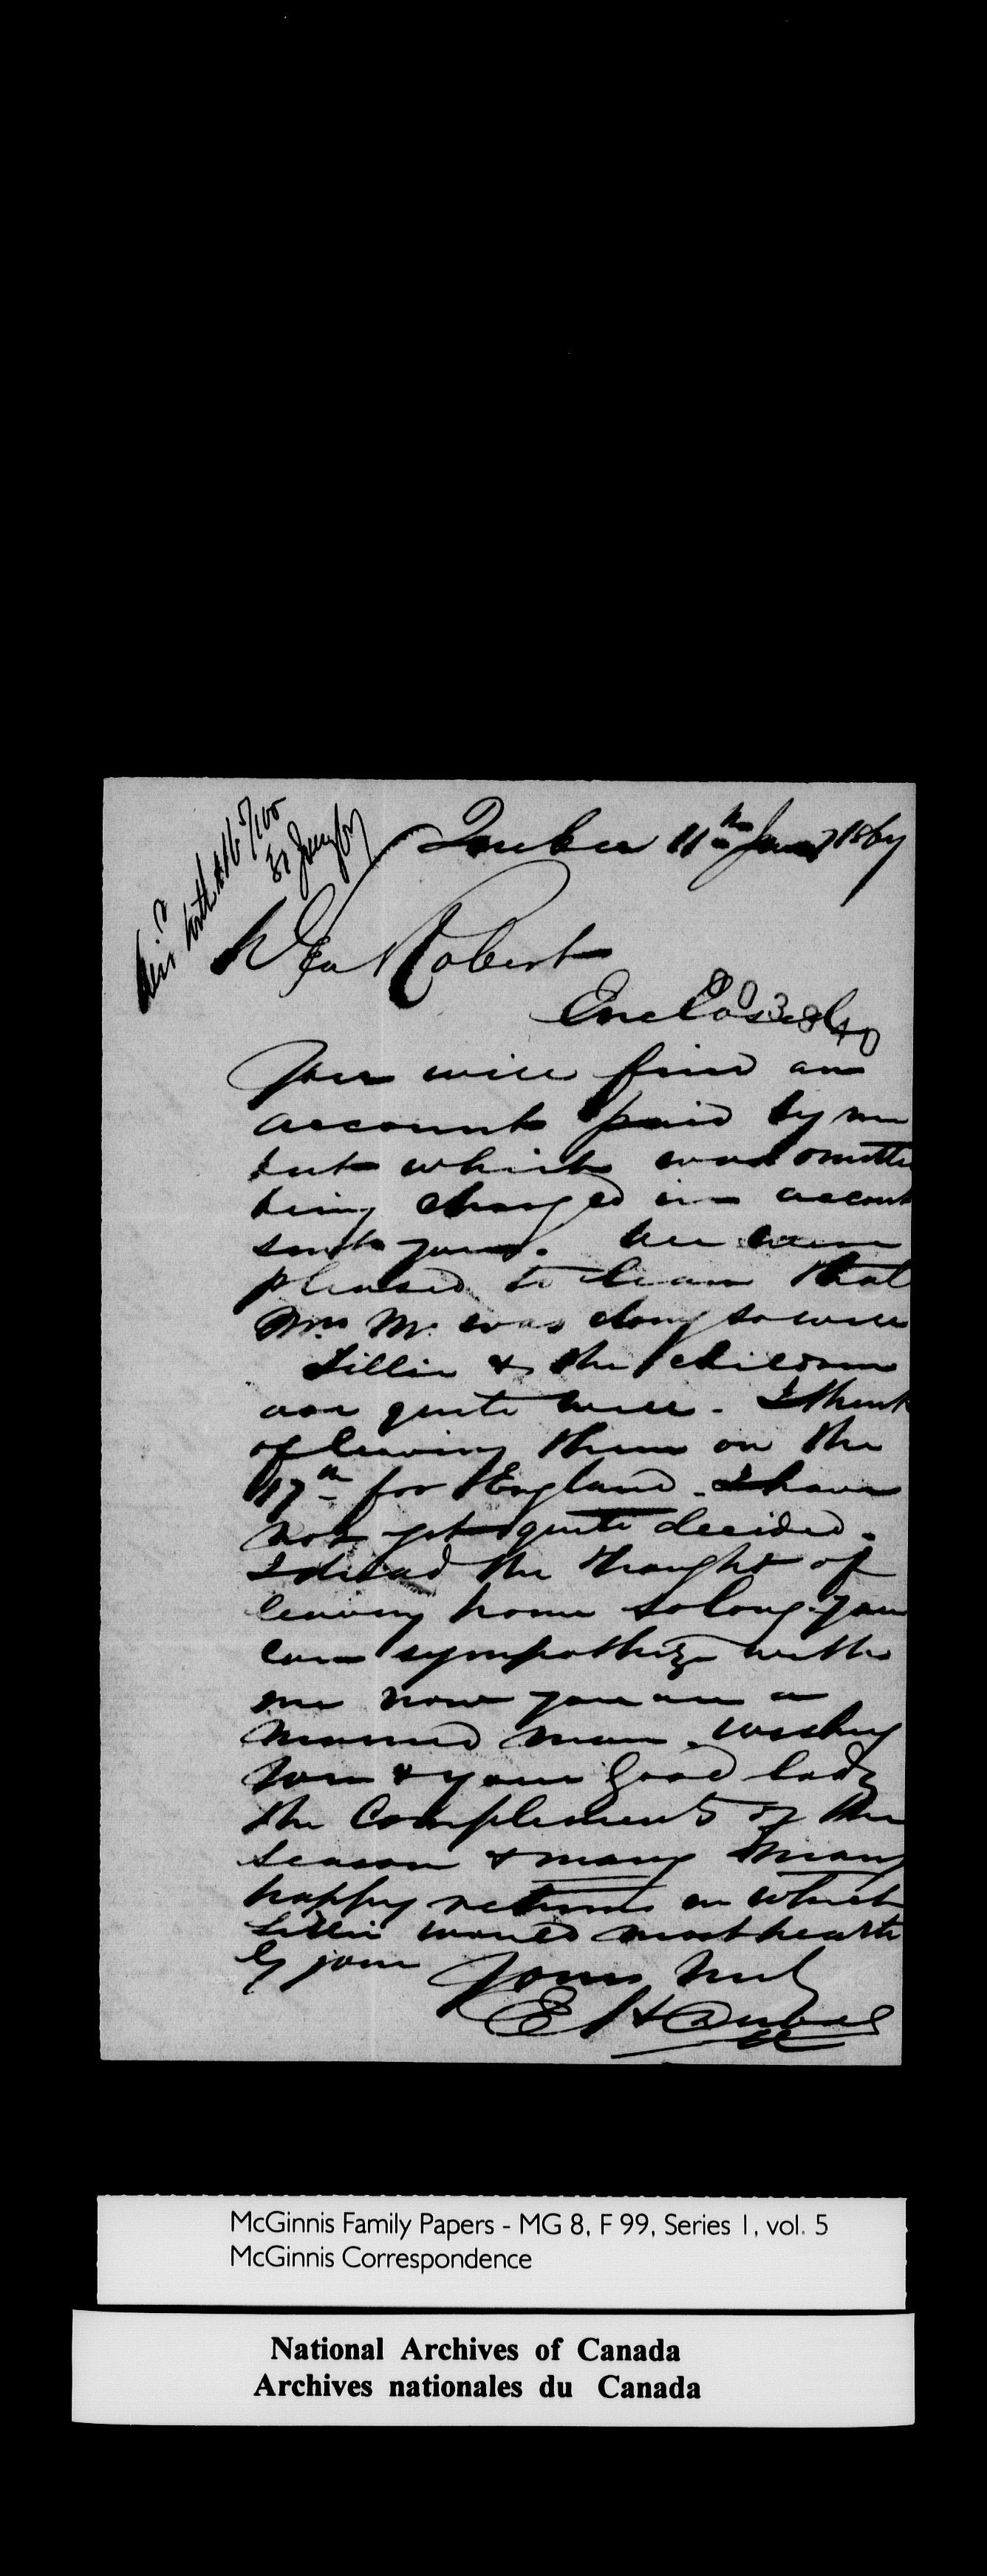 Quebec 11th Jany 1867
Dear Robert
Enclosed
003840
you will find an
account paid by me
but which was omitte
being charged in account
sent yours. We were
pleased to learn that
Mrs M. was doing so well
Lillie & the children
are quite well. I think
of leaving them on the
17th for England. I have
not yet quite decided.
I dread the thought of
leaving home so long you
can sympathize with
me now you are a
married man. Wishing
you & your good lady
the Compliments of the
season & many many
happy returns in which
Lillie would most hearti
ly join Yours truly
McGinnis Family Papers - MG 8, F 99, Series 1, vol. 5
McGinnis Correspondence
National Archives of Canada
Archives nationales du Canada